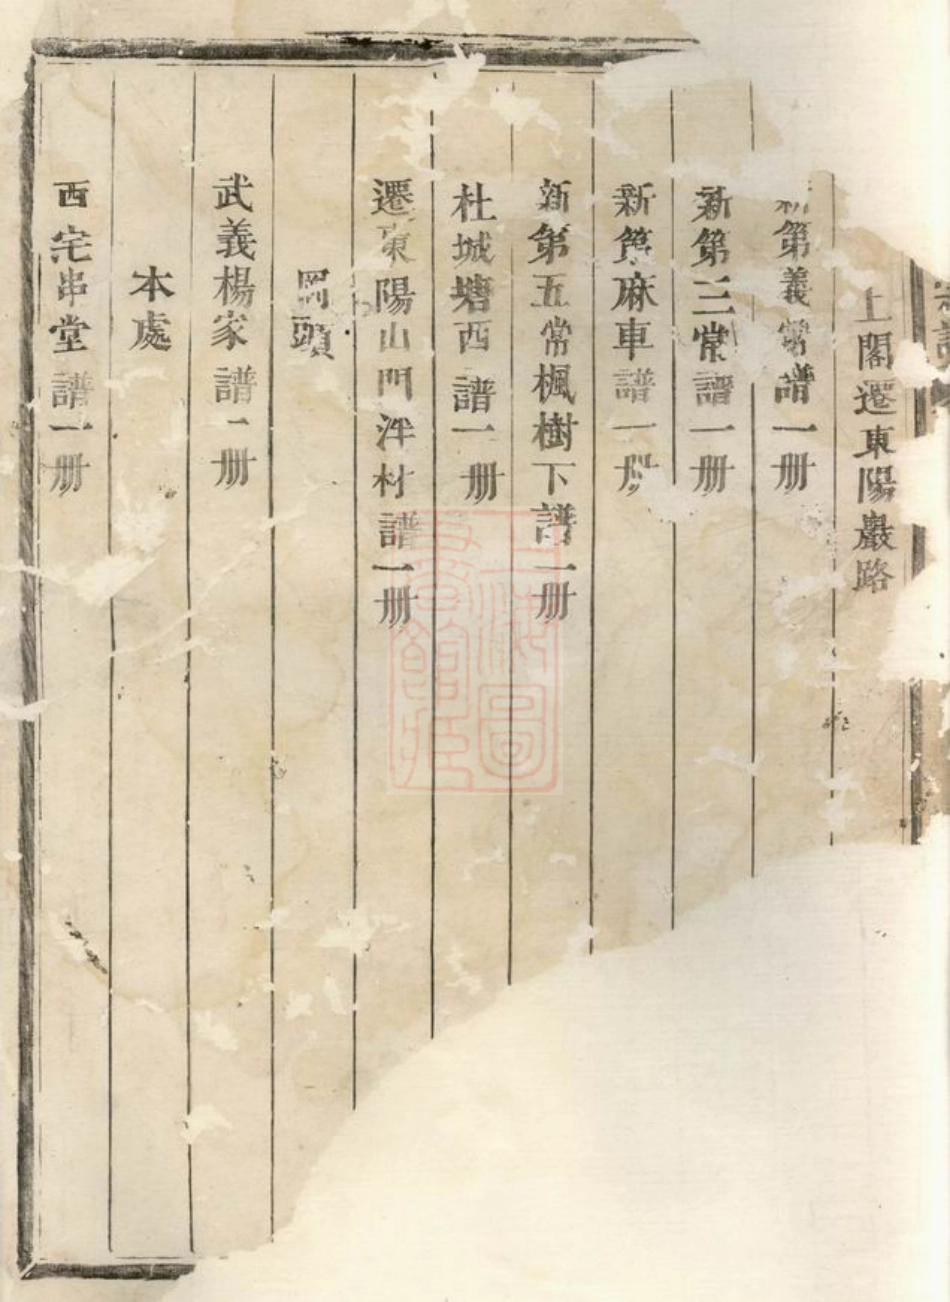 上閣遷東陽巖路
新第義常譜一册
新第三常譜一册
新第麻車譜一册
新第五常楓樹下譜一册
杜城塘西譜一册
遷東陽山門泮村譜一册
岡頭
武義楊家譜一册
本處
西宅串堂譜一册